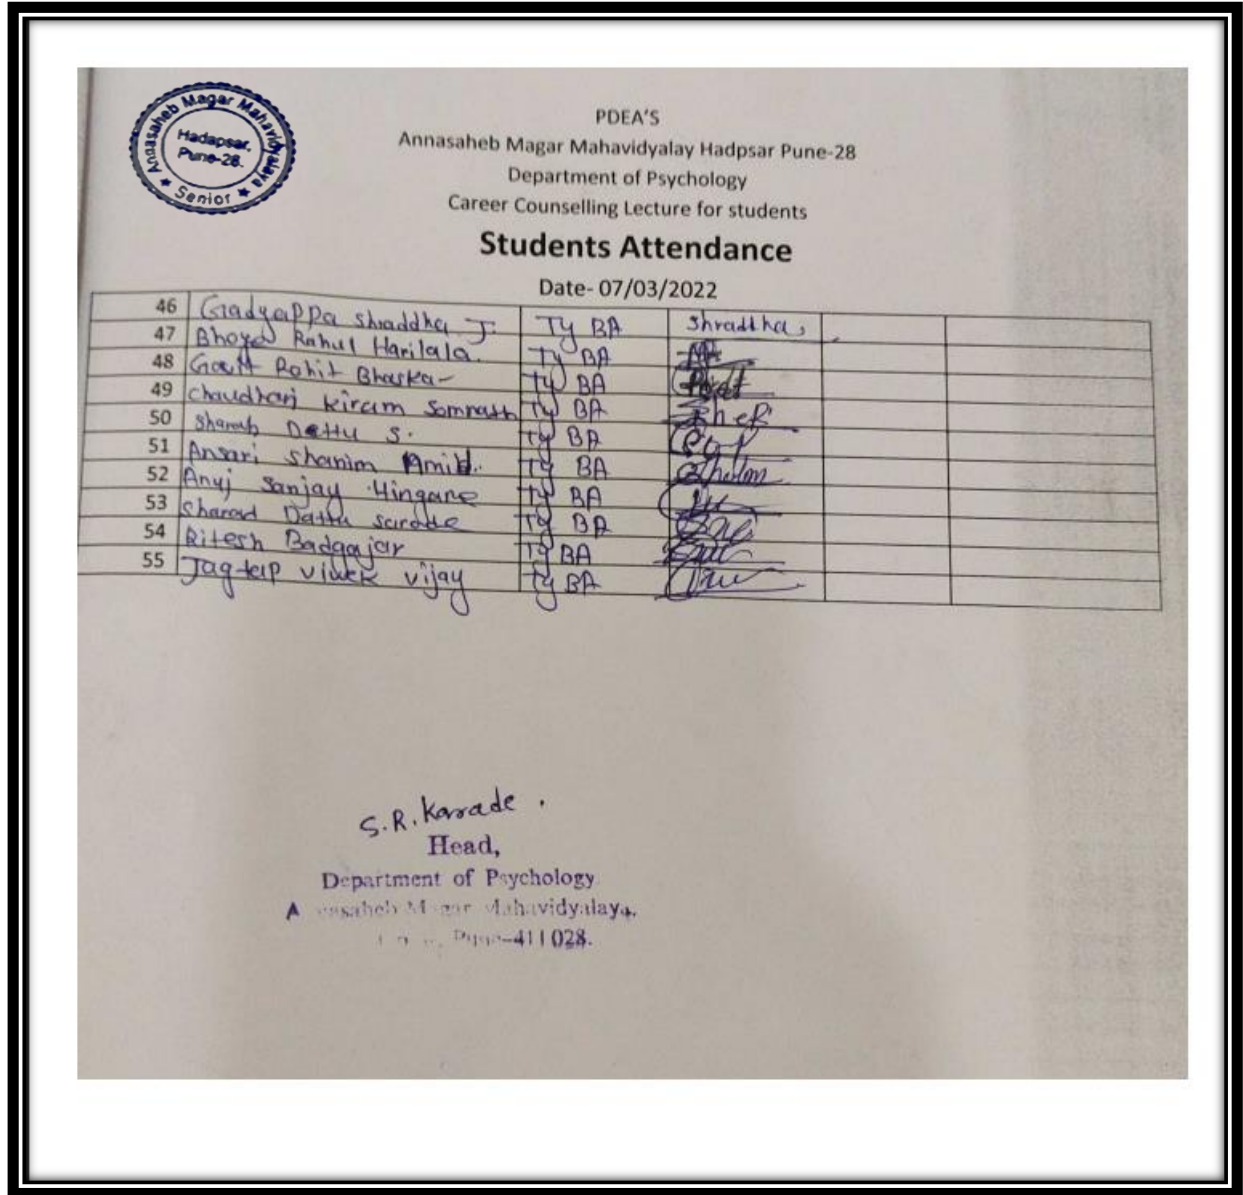 Annasaheb Magar Mahavidyalaya
Hadapsar,
Pune-28.
★ Senior ★
PDEA'S
Annasaheb Magar Mahavidyalay Hadpsar Pune-28
Department of Psychology
Career Counselling Lecture for students
Students Attendance
Date- 07/03/2022
46 Gadyappa Shraddha J. Ty BA Shradtha
47 Bhoye Rahul Harilala. Ty BA
48 Rohit Bhaskar Ty BA
49 Chaudhari Kiram Somnath Ty BA
50 Sharab Dattu S. Ty BA
51 Ansari Shanim Amid. Ty BA
52 Anuj Sanjay Hingane Ty BA
53 Sharad Dattu Sarode Ty BA
54 Ritesh Badgajar Ty BA
55 Jagtap vivek vijay Ty BA
S.R. Karade.
Head,
Department of Psychology
Mahavidyalaya,
Pune-411028.